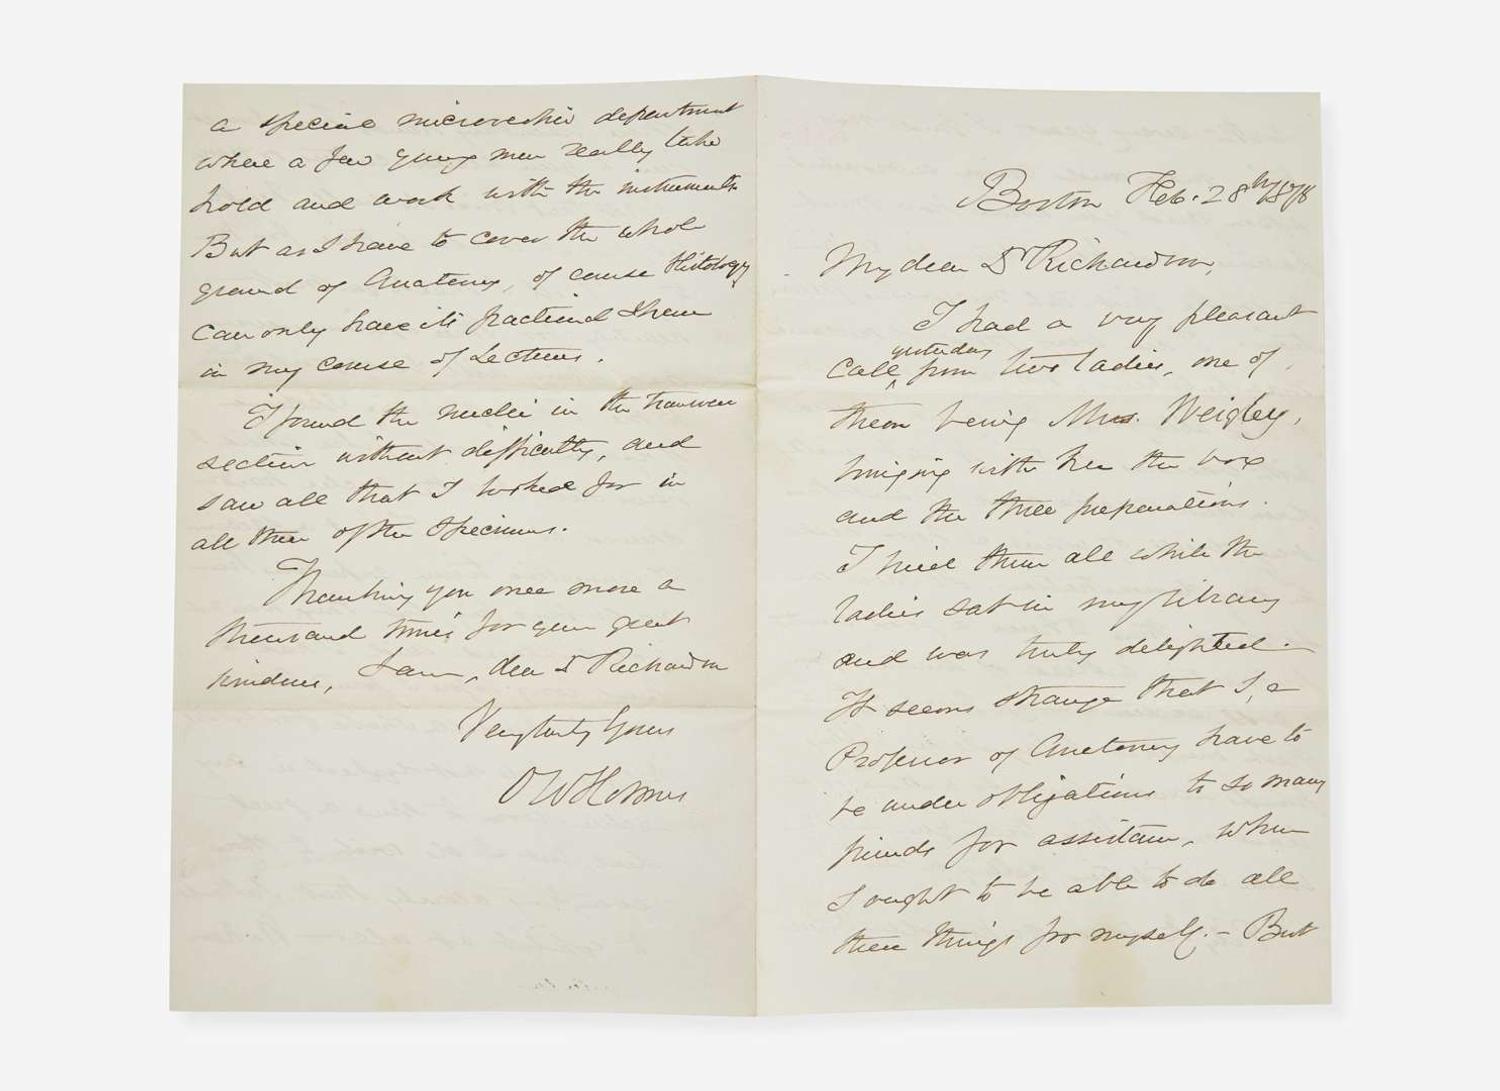 Boston Feb. 28th 1878
My dear Dr Richardson,
I had a very pleasant
yesterday
call from two ladies, one of
them being Mrs. Weigley,
bringing with her the box
and the three preparations.
I tried them all while the
ladies sat in my library
and was truly delighted.
It seems strange that I, a
Professor of Anatomy have to
be under obligations to so many
friends for assistance, when
I ought to be able to do all
these things for myself. – But
a special microscopic department
where a few young men really take
hold and work with the instruments
But as I have to cover the whole
ground of Anatomy, of course Histology
can only have its fractional share
in my course of Lectures.
I found the nuclei in the transverse
section without difficulty, and
saw all that I looked for in
all three of the specimens.
Thanking you once more a
thousand times for your great
kindness, I am, dear Dr Richardson
Very truly Yours
O W Holmes